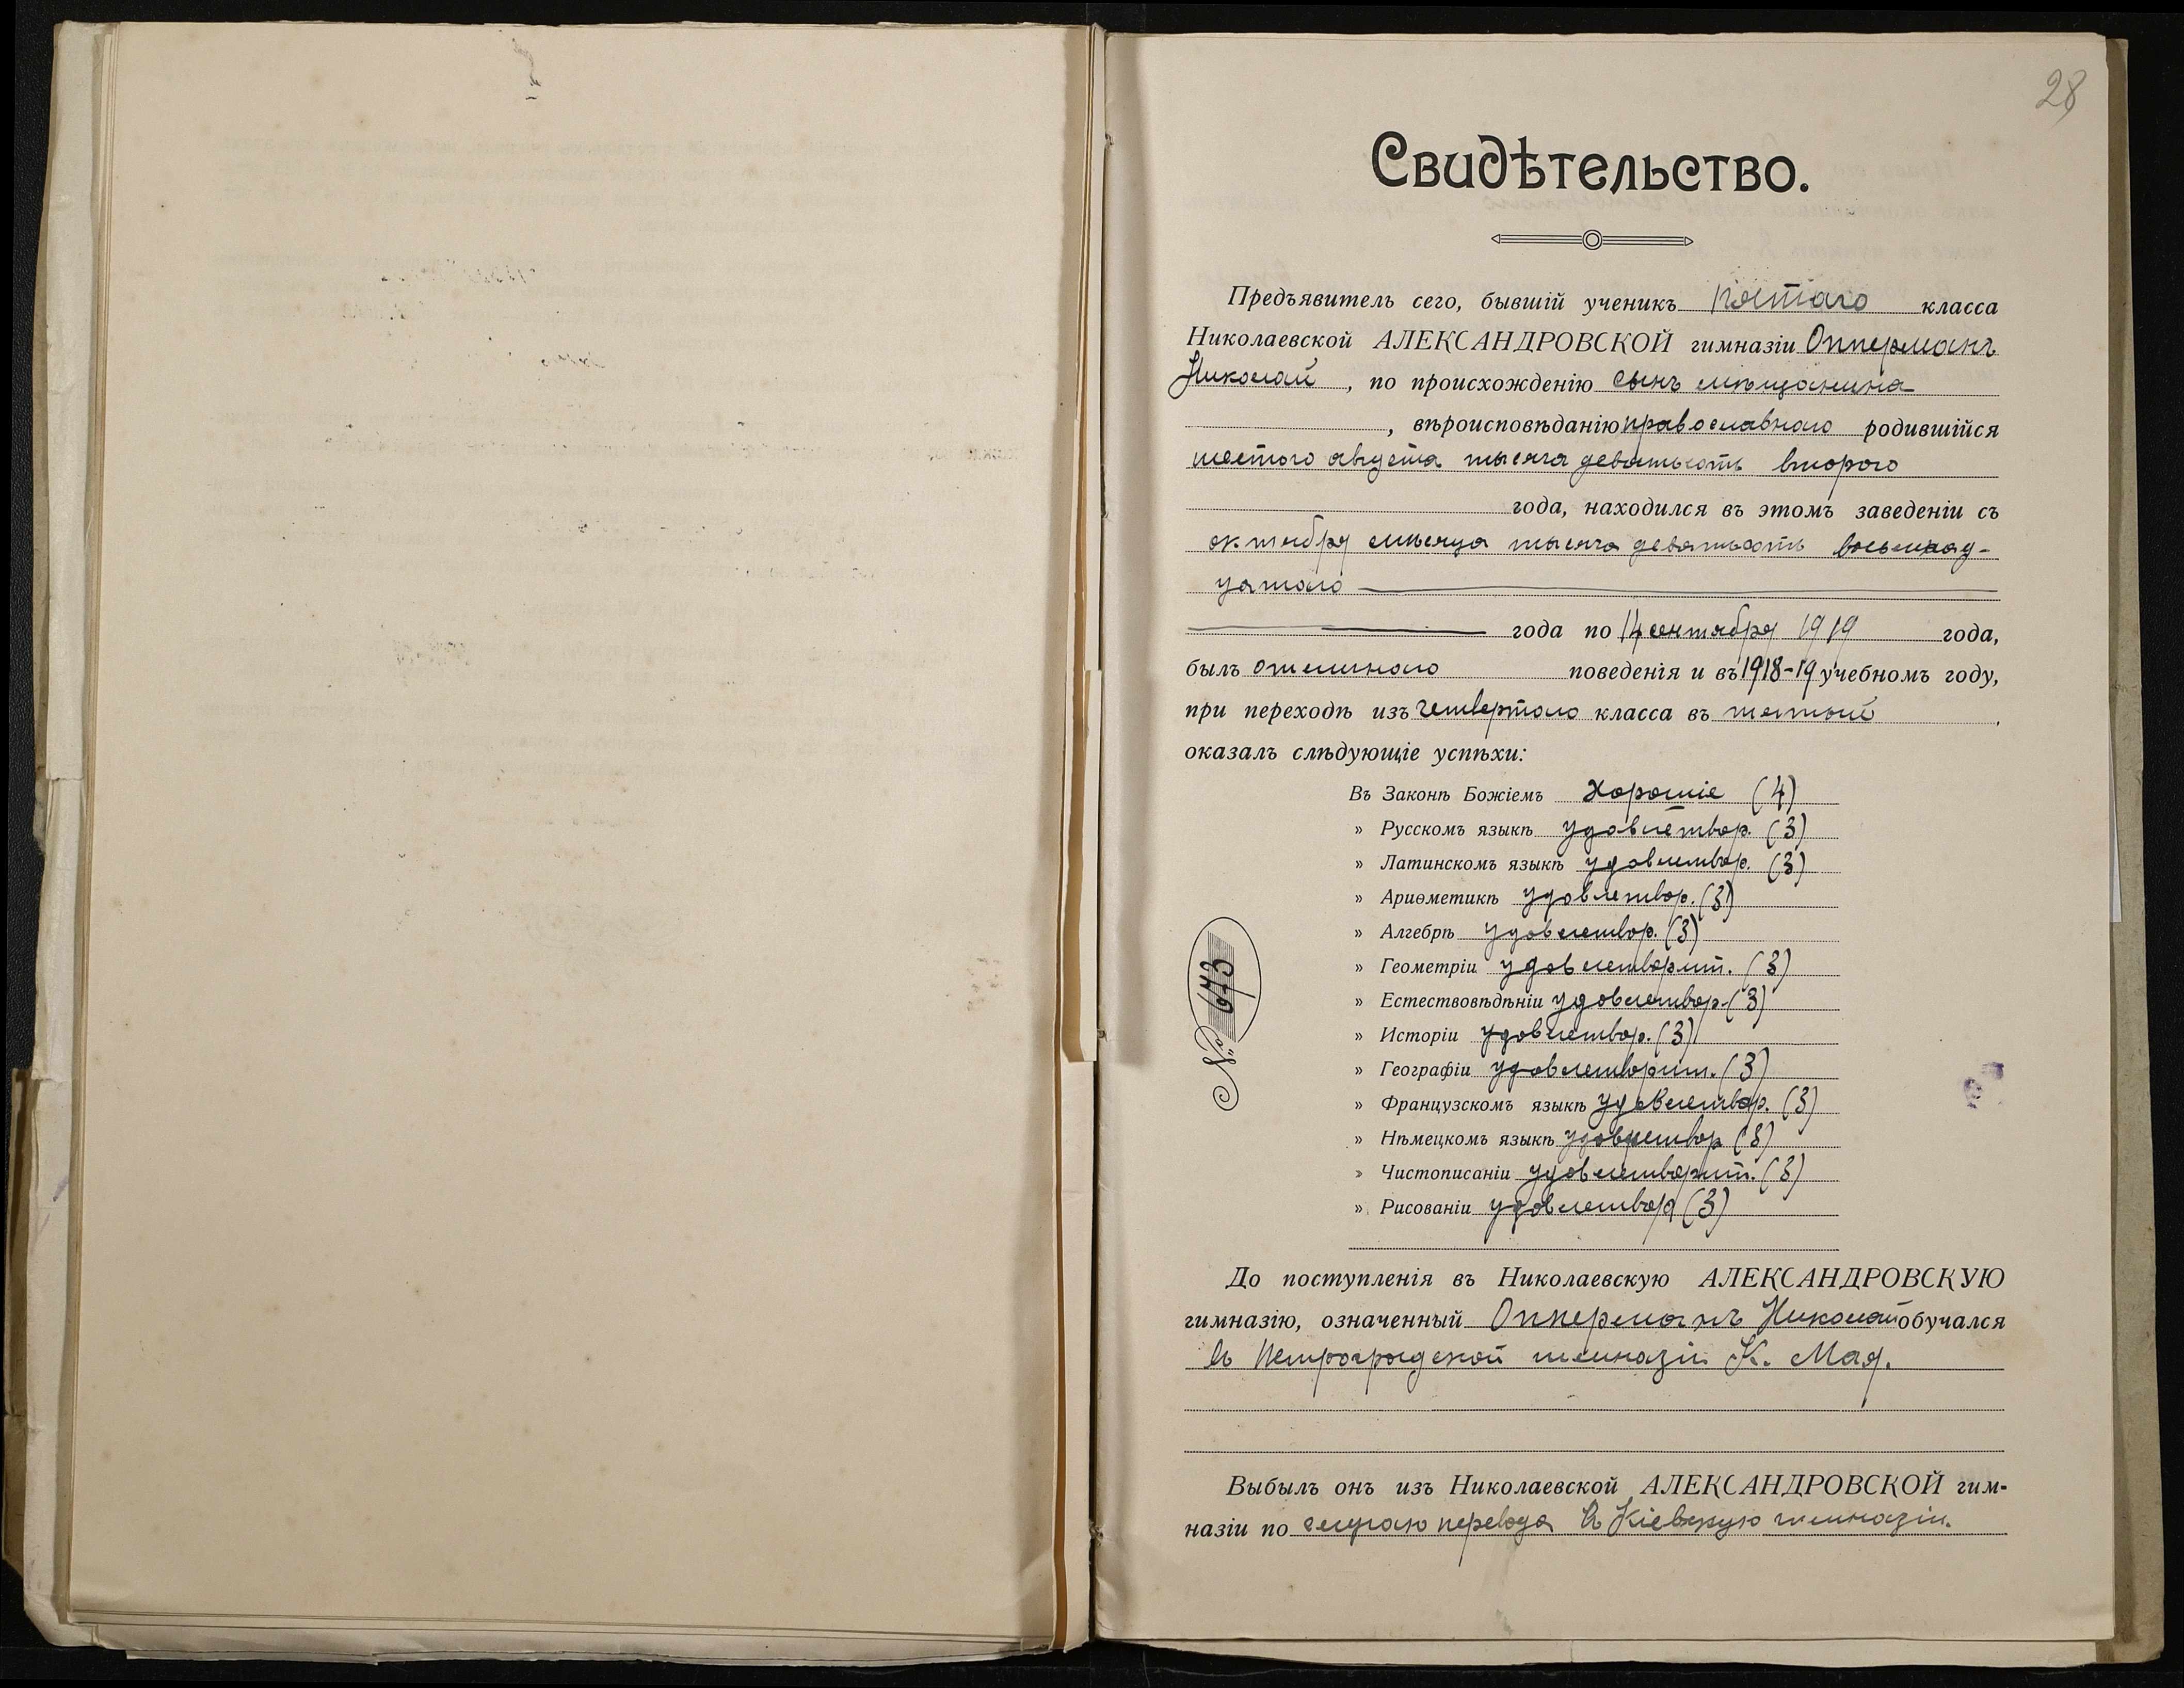 28
Свидѣтельство.
Предъявитель сего, бывшій ученикъ пятаго класса
Николаевской АЛЕКСАНДРОВСКОЙ гимназіи Опперманъ
Николай, по происхожденію сынъ мѣщанина
, вѣроисповѣданію православнаго родившійся
шестого августа тысяча девятьсотъ второго
года, находился въ этомъ заведеніи съ
октября мѣсяца тысяча девятьсотъ восемнад-
цатаго
года по 14 сентября 1919 года,
былъ отличнаго поведенія и въ 1918-19 учебномъ году,
при переходѣ изъ четвертаго класса въ пятый,
оказалъ слѣдующіе успѣхи:
Въ Законѣ Божіемъ Хорошіе (4)
» Русскомъ языкѣ удовлетвор. (3)
» Латинскомъ языкѣ удовлетвор. (3)
» Ариѳметикѣ удовлетвор. (3)
» Алгебрѣ удовлетвор. (3)
» Геометріи удовлетворит. (3)
» Естествовѣдѣніи удовлетвор. (3)
» Исторіи удовлетвор. (3)
» Географіи удовлетворит. (3)
» Французскомъ языкѣ удовлетвор. (3)
» Нѣмецкомъ языкѣ удовлетвор (3)
» Чистописаніи удовлетворит. (3)
» Рисованіи удовлетвор (3)
№ 673
До поступленія въ Николаевскую АЛЕКСАНДРОВСКУЮ
гимназію, означенный Опперманъ Николай обучался
въ Петроградской гимназіи К. Мая.
Выбылъ онъ изъ Николаевской АЛЕКСАНДРОВСКОЙ гим-
назіи по случаю перевода въ Кіевскую гимназію.